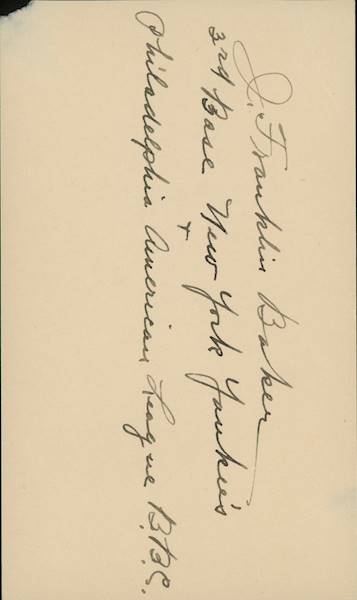 J. Franklin Baker
3rd Base New York Yankee's
+
Philadelphia American League B.B.C.